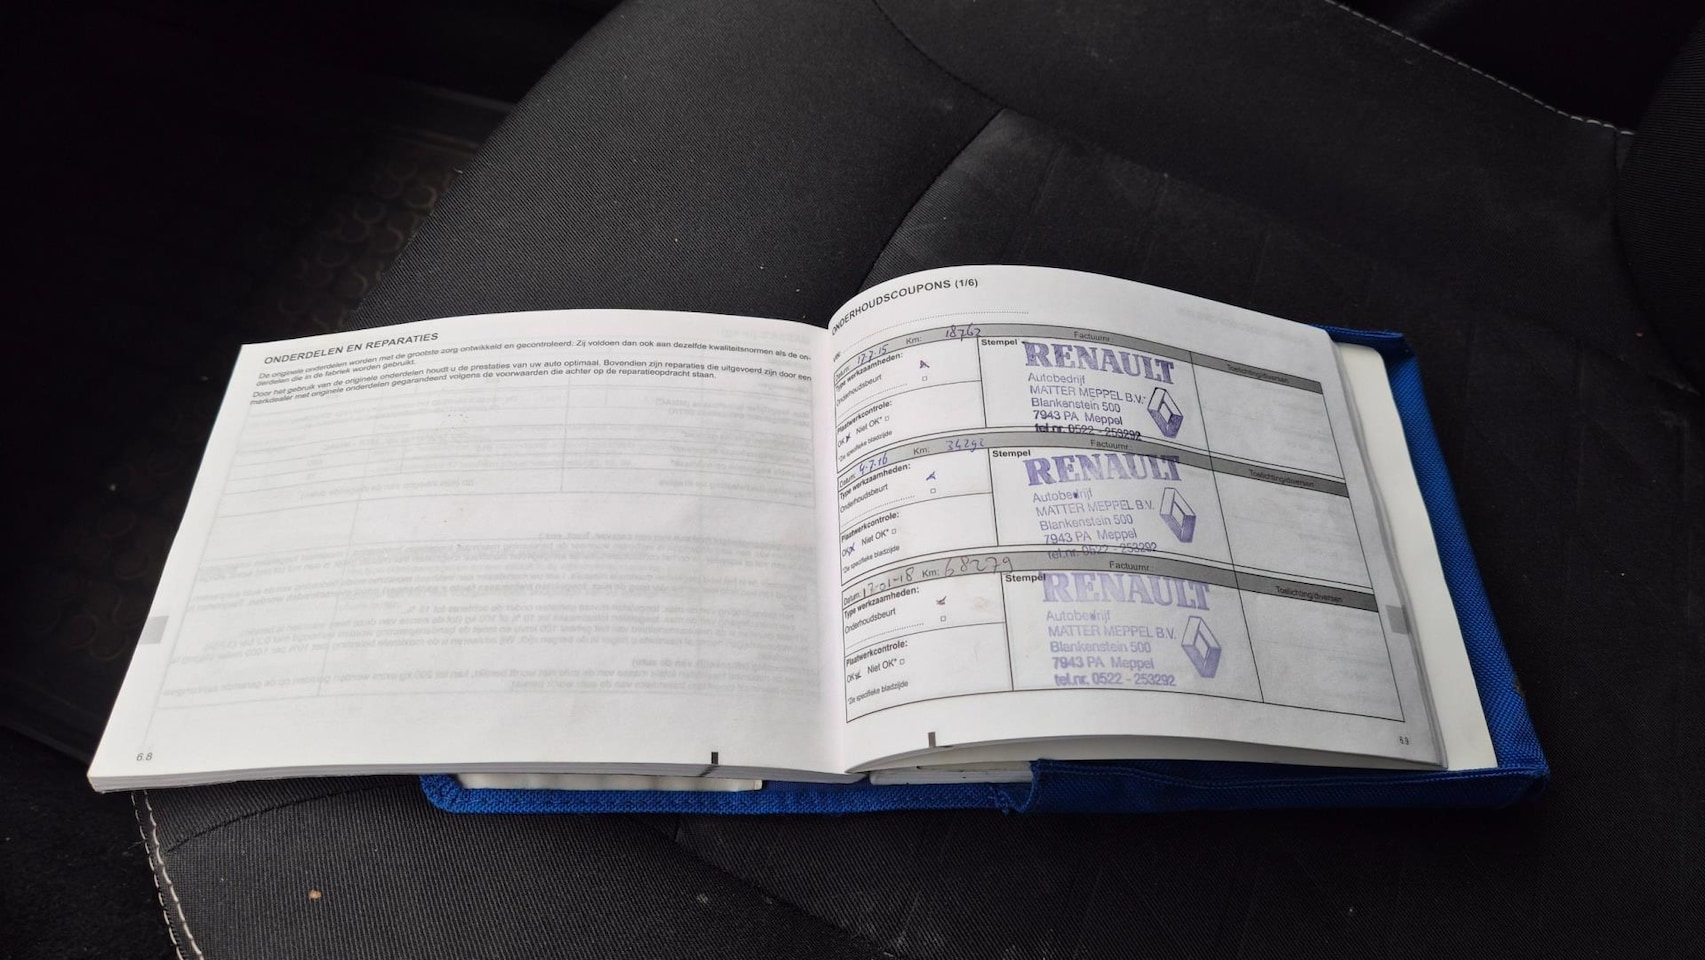 ONDERDELEN EN REPARATIES
De originele onderdelen worden met de grootste zorg ontwikkeld en gecontroleerd. Zij voldoen dan ook aan dezelfde kwaliteitsnormen als de on-
derdelen die in de fabriek worden gebruikt.
Door het gebruik van de originele onderdelen houdt u de prestaties van uw auto optimaal. Bovendien zijn reparaties die uitgevoerd zijn door een
merkdealer met originele onderdelen gegarandeerd volgens de voorwaarden die achter op de reparatieopdracht staan.
6.8
ONDERHOUDSCOUPONS (1/6)
Datum: 17.2.15 Km: 18762 Factuurnr.
Type werkzaamheden:
Onderhoudsbeurt
Plaatwerkcontrole:
OK Niet OK*
*De specifieke bladzijde
Stempel
RENAULT
Autobedrijf
MATTER MEPPEL B.V.
Blankenstein 500
7943 PA Meppel
tel.nr. 0522 - 253292
Toelichting/diversen
Datum: 4.2.16 Km: Factuurnr.
Type werkzaamheden:
Onderhoudsbeurt
Plaatwerkcontrole:
OK Niet OK*
*De specifieke bladzijde
Stempel
RENAULT
Autobedrijf
MATTER MEPPEL B.V.
Blankenstein 500
7943 PA Meppel
tel.nr. 0522 - 253292
Toelichting/diversen
Datum: 17-01-18 Km: 68279 Factuurnr.
Type werkzaamheden:
Onderhoudsbeurt
Plaatwerkcontrole:
OK Niet OK*
*De specifieke bladzijde
Stempel
RENAULT
Autobedrijf
MATTER MEPPEL B.V.
Blankenstein 500
7943 PA Meppel
tel.nr. 0522 - 253292
Toelichting/diversen